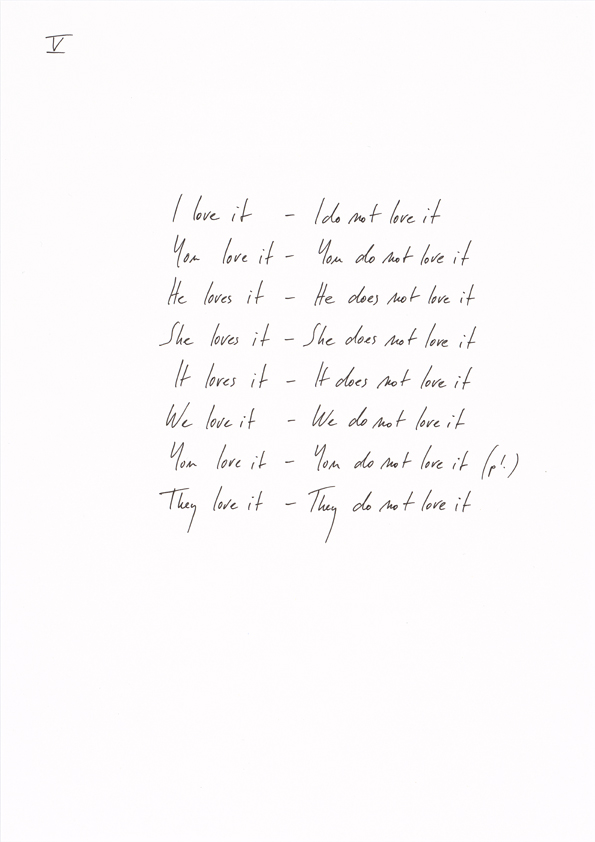 V
I love it - I do not love it
You love it - You do not love it
He loves it - He does not love it
She loves it - She does not love it
It loves it - It does not love it
We love it - We do not love it
You love it - You do not love it (pl.)
They love it - They do not love it